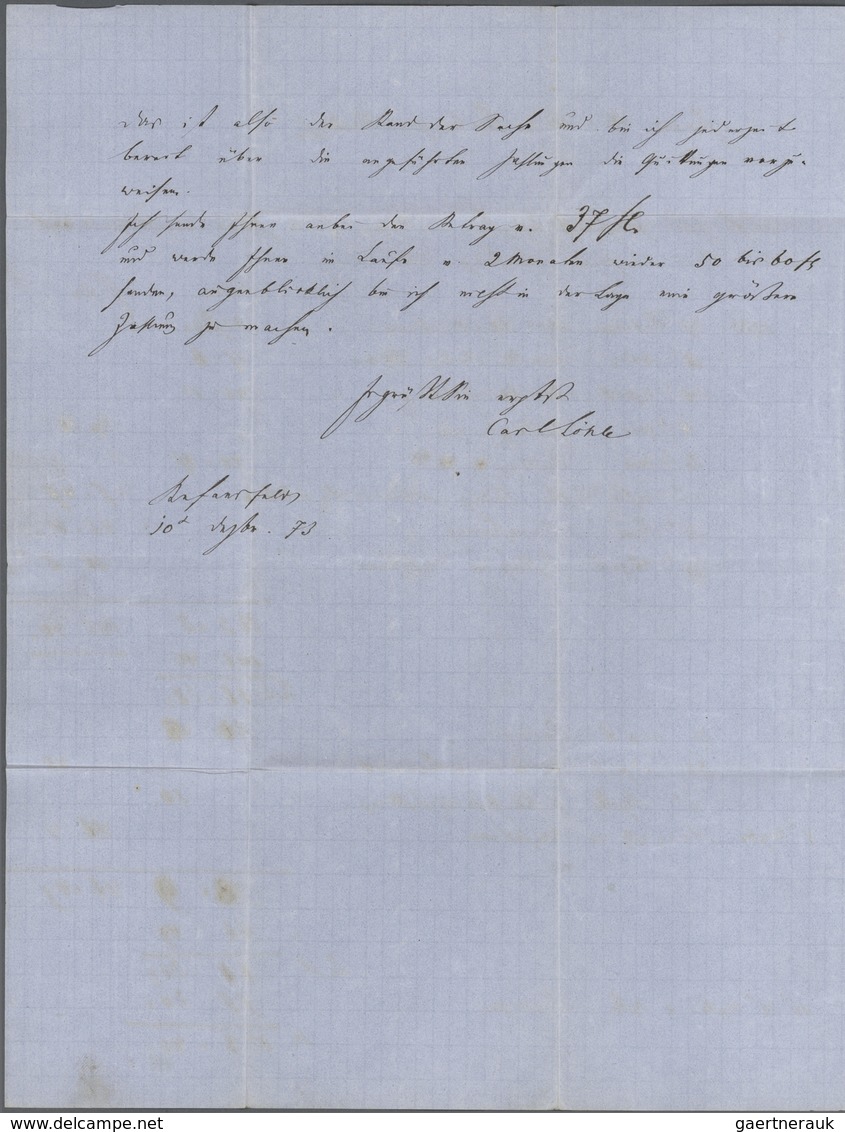 das ist also der Stand der Sache und bin ich jederzeit
bereit über die angeführten Zahlungen die Quittungen vorzu-
weisen.
Ich sende Ihnen anbei den Betrag v. 37 fl.
und werde Ihnen im Laufe v. 2 Monaten wieder 50 bis 60 fl
senden, augenblicklich bin ich nicht in der Lage eine größere
Zahlung zu machen.
Es grüßt Sie ergbst
Carl Löhle
10t Dezbr. 73
www.delcampe.net
gaertnerauk